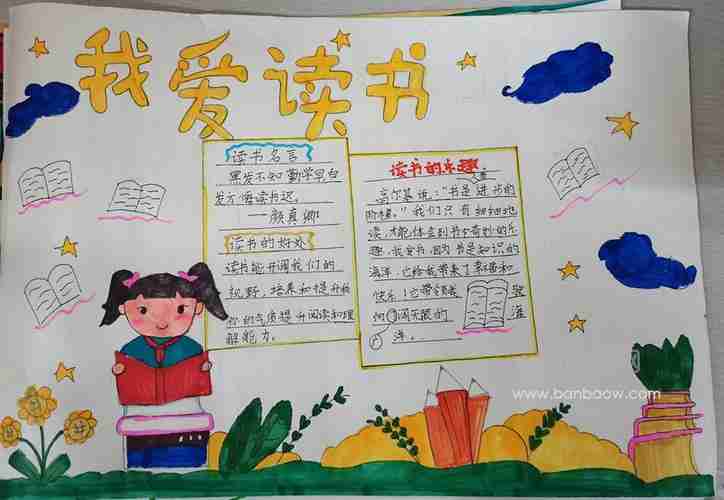 我爱读书
读书名言
黑发不知勤学早白
发方悔读书迟。
——颜真卿
读书的好处
读书能开阔我们的
视野，培养和提升我
们的气质提升阅读和理
解能力。
读书的乐趣
高尔基说："书是进步的
阶梯。"我们只有细细地
读，才能体会到书中奇妙的乐
趣，我爱书，因为书是知识的
海洋，它给我带来了智慧和
快乐！它带领我
向阔无限的
洋。
www.banbaow.com